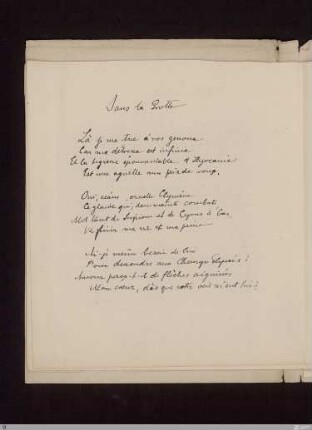 Dans la Grotte
Là je me tue à vos genoux
Car ma détresse est infinie
Et la tigresse épouvantable d'Hyrcanie
Est une agnelle au prix de vous,
Oui, céans, cruelle Clymène
Ce glaive qui, dans maints combats
Mit tant de Scipions et de Cyrus à bas,
Va finir ma vie et ma peine
Ai-je même besoin de lui
Pour descendre aux Champs Elysées ?
Amour perça-t-il de flèches aiguisées
Mon cœur, dès que votre œil m'eut lui ?